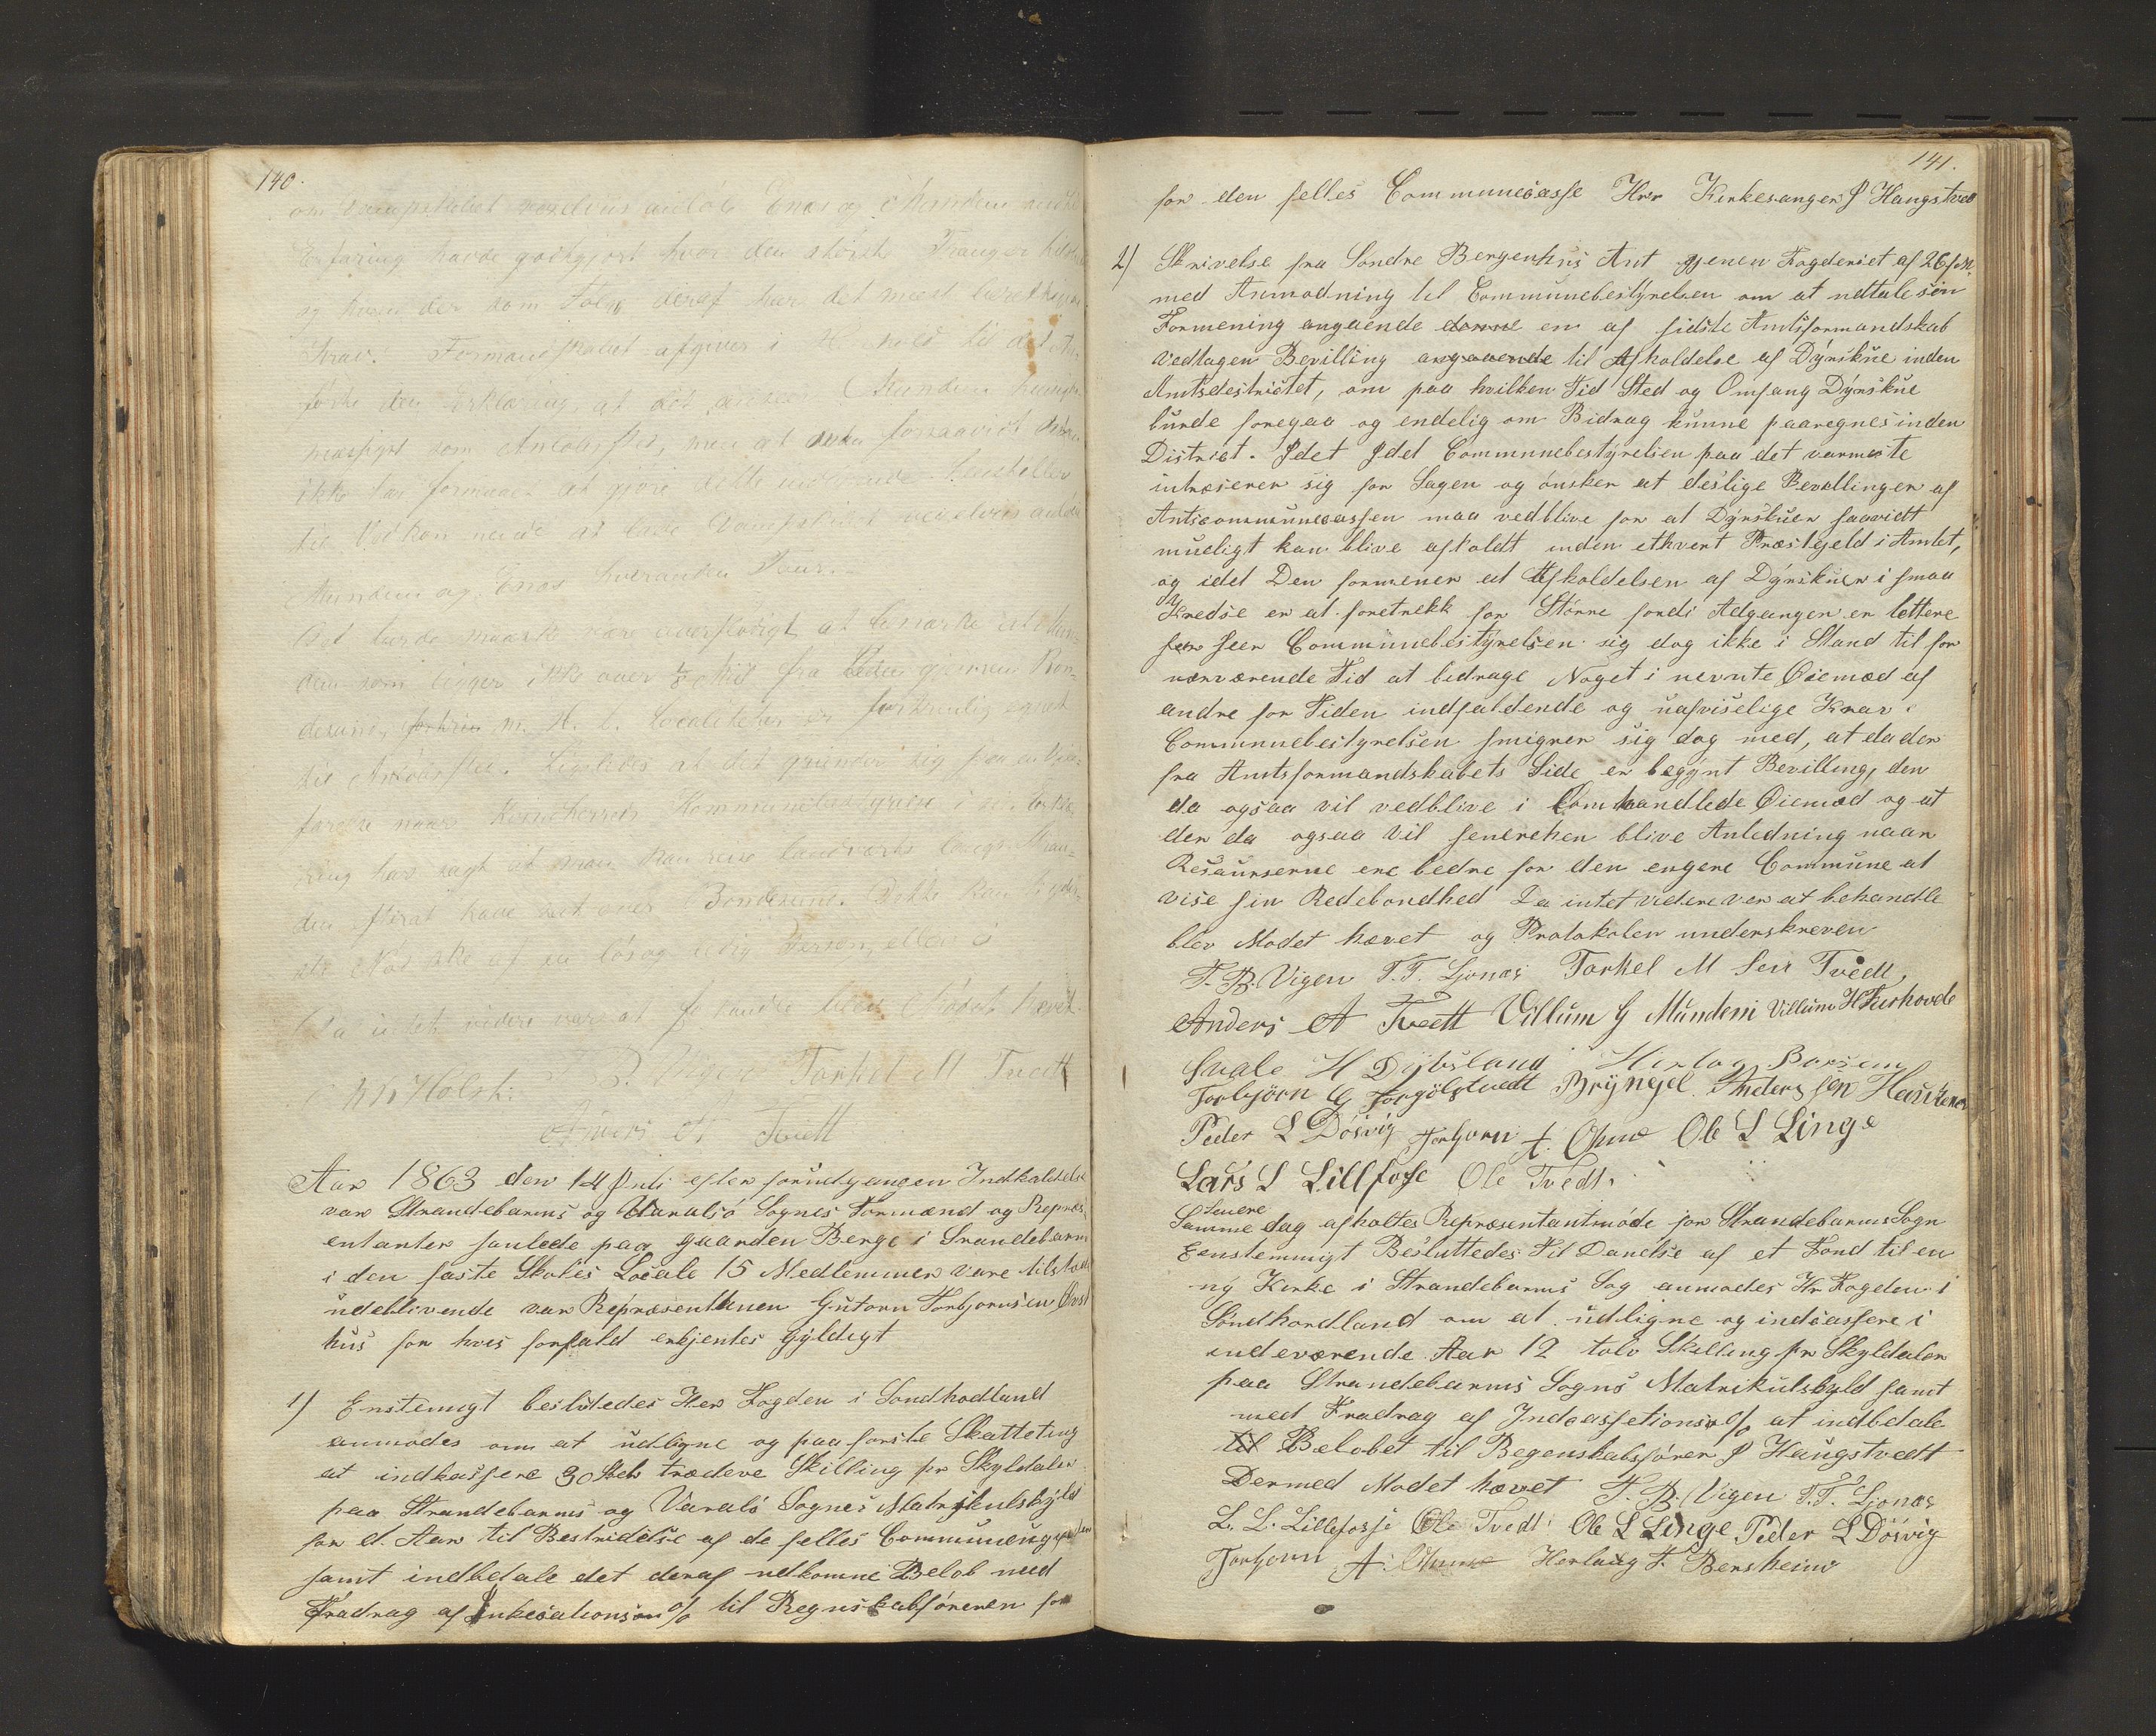 140.
om Dampskibet vexelvis anløb Enæs og Mundem indtil
Erfaring havde godtgjort hvor den største Trang er
og hvem der som Følge deraf har det meest berettigede
Krav. Formandskabet afgiver i Henhold til det An-
førte den Erklæring, at det anseer Mundem
som Anløbssted, men at
ikke har formaaet at gjøre dette
til at lade Dampskibet vexelviis anløbe
Mundem og Enæs hveranden Tour.
Det turde maaske være overflødigt at bemærke at Mun-
dem som ligger ikke over 1/8 Miil fra Leden gjennem Bon-
desund, m. H. t. Localiteter er fortrinlig egnet
til Anløbssted. Ligeledes at det grunder sig paa en Vild-
farelse naar Kommunebestyrelse i sin Erklæ-
ring har sagt at man kan reise landværts langs Stran-
den istedet have ret over Bondesund. Dette kan
Nød ske af en løs og ledig Person, eller
Da intet videre var at behandle blev Mødet hævet.
Holst. T. B. Vigen Torkel M Tvedt
Anders A Tvett
Aar 1863 den 14 Juli efter forudgangen Indkaldelse
var Strandebarms og Varalsö Sognes Formænd og Repræs
entanter samlede paa gaarden Berge i Srandebarm
i den faste Skoles Locale 15 Medlemmer vare tilstede
udeblivende var Repræsentanen Gutorm Torbjornsen Øvst
hus for hvis forfald erkjentes gyldigt
1) Enstemigt beslutedes Her Fogden i Sondhodland
anmodes om at udligne og paa forste Skatteting
at indkassere 30 Sk tredeve Skilling pr Skyldaler
paa Strandebarms og Varalö Sognes Matrikulskyld
for d. Aar til Bestridelse af de felles Communeugifter
samt indbetale det deraf udkomne Belob med
Fradrag af Inkesations o/o til Regnskabsföreren for
141.
for den felles Communecasse Hrr Kirkesanger J Haugstved
2) Skrivelse fra Söndre Bergenhus Amt gjenem Fogderiet af 26 f. M.
med Anmodning til Communebestyrelsen om at udtale sin
Formening angaende denne en af sidste Amtsformandskab
vedtagen Bevilling angaaende til Afholdelse af Dyrskue inden
Amtsdestrictet, om paa hvilken Tid Sted og Omfang Dyrskue
burde foregaa og endelig om Bidrag kunne paaregnes inden
District. Idet Idet Communebestyrelsen paa det varmeste
intreserer sig for Sagen og önsker at deslige Bevellinger af
Amtscommunecassen maa vedblive for at Dyrskuer saavidt
mueligt kan blive afholdt inden ethvert Præstegjeld i Amtet,
og idet Den formener at Afholdelsen af Dyrskuer i smaa
Kredse er at foretrekk for Större fordi Adgangen er lettere
saa seer Communebestyrelsen sig dog ikke i Stand til for
nærværende Tid at bedrage Noget i nevnte Öiemæd af
andre for Tiden indfaldende og uafviselige Krav.
Communebestyrelsen smigrer sig dog med, at da der
fra Amtsformandskabets Side er begynt Bevilling, den
da ogsaa vil vedblive i omhandlede Öiemæd og at
der da ogsaa vil senerehen blive Anledning naar
Resaurserne ere bedre for den engere Commune at
vise sin Redebondhed Da intet videre var at behandle
blev Modet hævet og Protokolen underskreven
T. B. Vigen T. T. Ljonæs Torkel M sen Tvedt,
Anders A Tvett Villum G Mundem Villum H Kushovde
Svale H Djvsland Herlog Barsem
Torbjörn G Torgölstvedt Bryngel Anderssen Haukenes
Peder L Dösvig Torbjorn A. Ohme Ole L Linge
Lars L Lillfosse Ole Tvedt.
Senere
Samme dag afholtes Repræsentantmöde for Strandebarms Sogn
Eenstemmigt Besluttedes Til Danelse af et Fond til en
ny Kirke i Strandebarms Sog anmodes Hr Fogden i
Söndhordland om at udligne og indcassere i
indeværende Aar 12 tolv Skilling pr Skyldaler
paa Strandebarms Sogns Matrikulskyld samt
med Fradrag af Indcassetions o/o at indbetale
til Bælobet til Regenskabsförer J Haugstvedt
Dermed Modet hævet T. B. Vigen T. T. Ljonæs
L. L. Lillefosse Ole Tvedt Ole L Linge Peder L Dösvig
Torbjorn A. Ohme Herlaug T. Bersheim